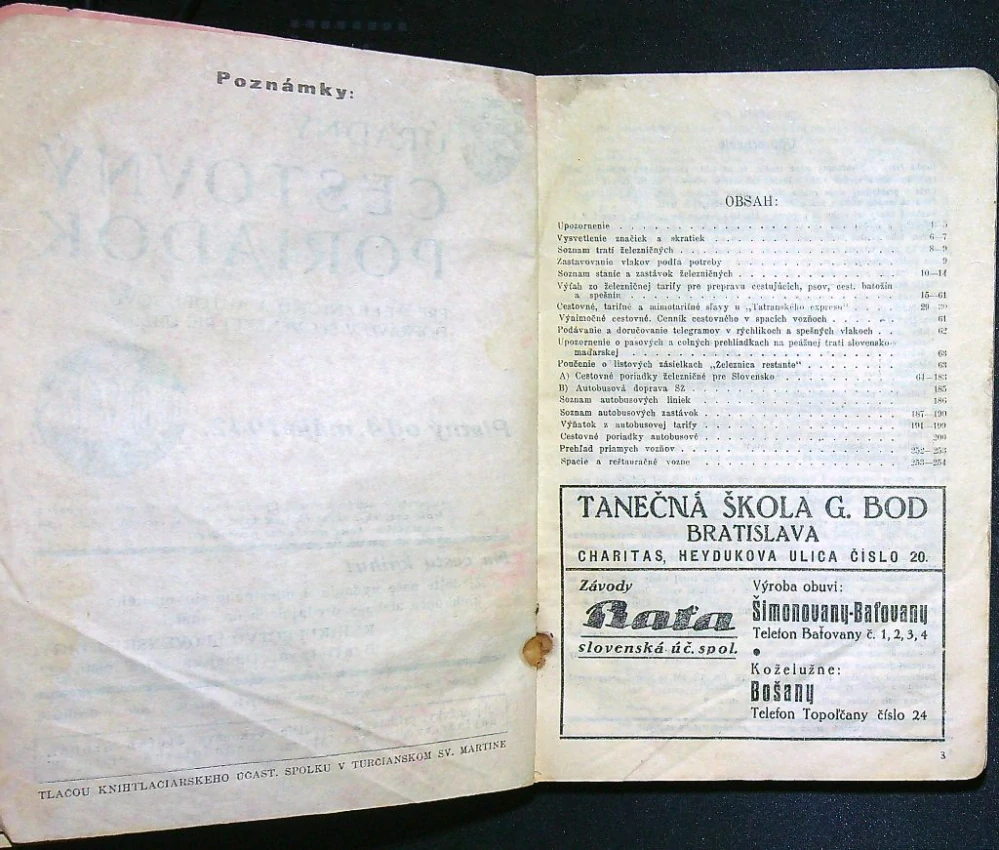 Poznámky:
TLAČOU KNIHTLAČIARSKEHO ÚČAST. SPOLKU V TURČIANSKOM SV. MARTINE
OBSAH:
Upozornenie
Vysvetlenie značiek a skratiek 6—7
Soznam tratí železničných 8—9
Zastavovanie vlakov podľa potreby 9
Soznam staníc a zastávok železničných 10—14
Výťah zo železničnej tarify pre prepravu cestujúcich, psov, cest. batožín
a spešnín 15—61
Cestovné, tarifné a mimotarifné sľavy u „Tatranského expresu"
Výnimočné cestovné. Cenník cestovného v spacích vozňoch 61
Podávanie a doručovanie telegramov v rýchlikoch a spešných vlakoch 62
Upozornenie o pasových a colných prehliadkach na peážnej trati slovensko-
maďarskej 63
Poučenie o listových zásielkach „Železnica restante" 63
A) Cestovné poriadky železničné pre Slovensko 64—183
B) Autobusová doprava SŽ 185
Soznam autobusových liniek 186
Soznam autobusových zastávok 187—190
Výňatok z autobusovej tarify 191—199
Cestovné poriadky autobusové 200
Prehľad priamych vozňov 252—253
Spacie a reštauračné vozne 253—254
TANEČNÁ ŠKOLA G. BOD
BRATISLAVA
CHARITAS, HEYDUKOVA ULICA ČÍSLO 20.
Závody
Baťa
slovenská úč. spol.
Výroba obuvi:
Šimonovany-Baťovany
Telefon Baťovany č. 1, 2, 3, 4
Koželužne:
Bošany
Telefon Topoľčany číslo 24
3